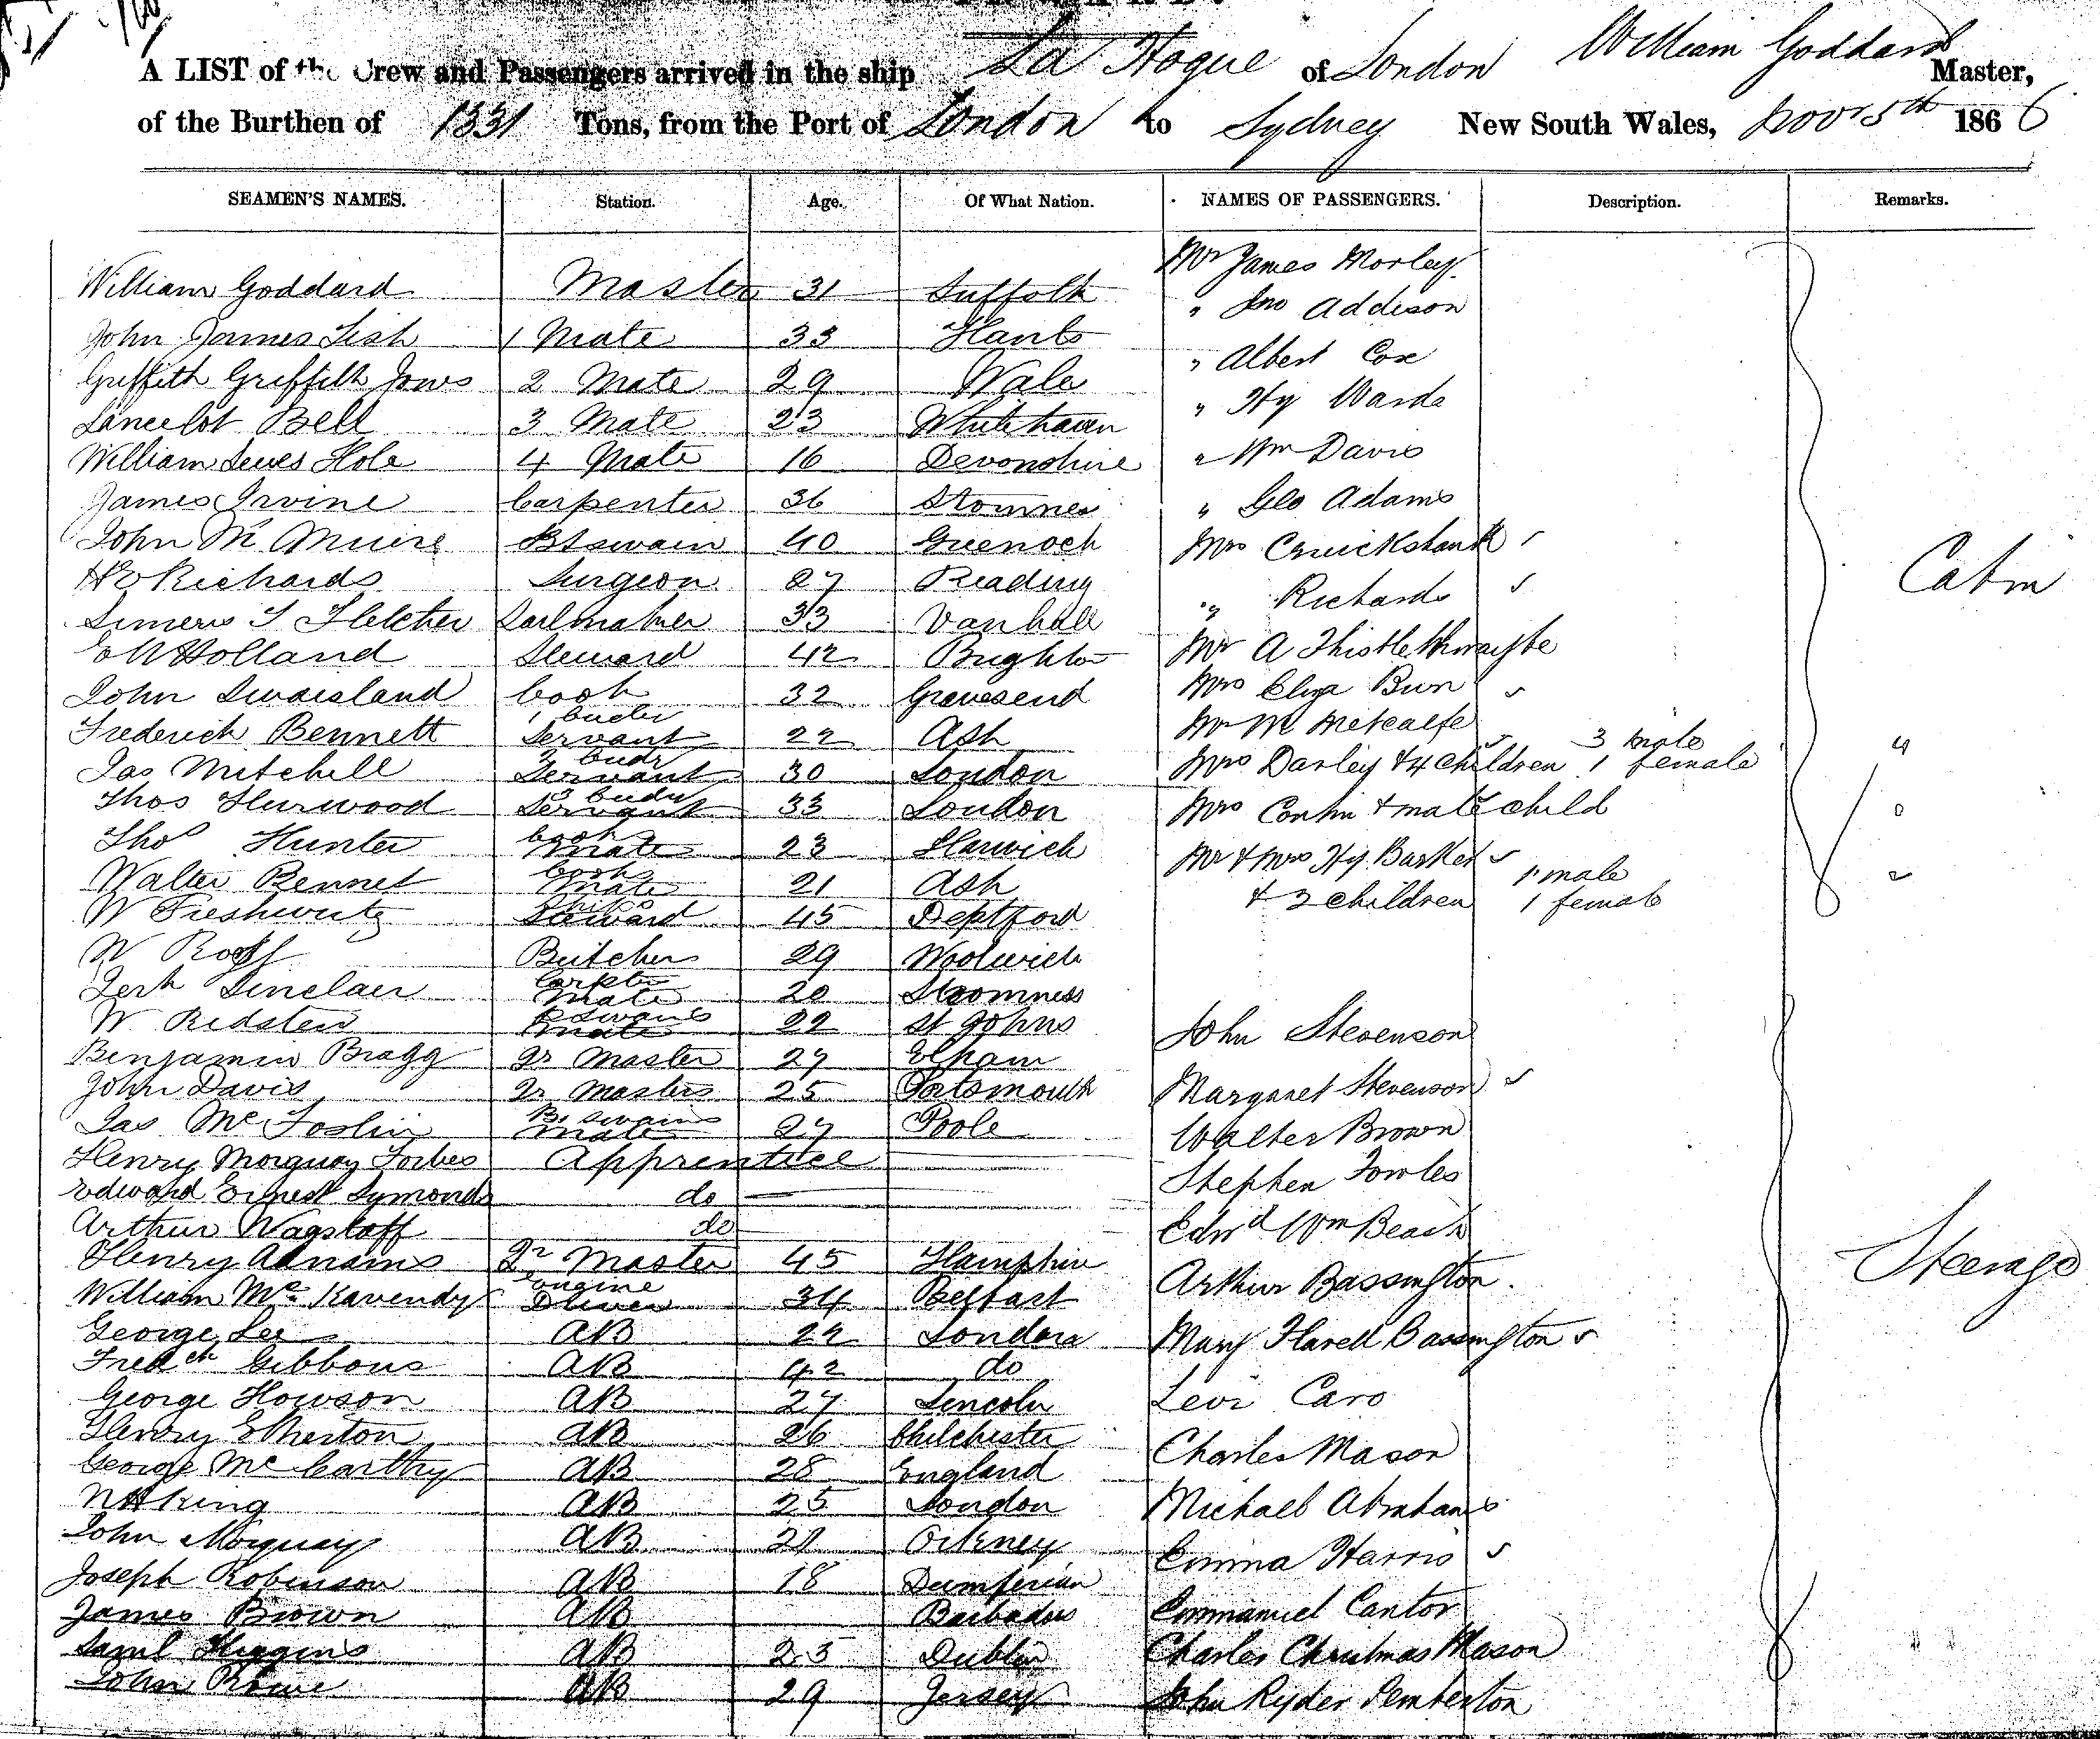 La Hogue William Goddard
A LIST of the Crew and Passengers arrived in the ship of London Master,
of the Burthen of 1331 Tons, from the Port of London to Sydney New South Wales, Nov 5th 1866
SEAMEN'S NAMES. Station. Age. Of What Nation. NAMES OF PASSENGERS. Description. Remarks.
William Goddard Master 31 Suffolk
John James Fish 1 Mate 33 Hants
Griffith Griffith Jones 2 Mate 29 Wales
Lancelot Bell 3 Mate 23 Whitehaven
William Hole 4 Mate 16 Devonshire
James Irvine Carpenter 36 Stomnes
John Mc Btswain 40 Greenoch
Richards Surgeon 27 Reading
Fletcher Sailmaker 33
E W Holland Steward 42 Brighton
John Swaisland Cook 32 Gravesend
Frederick Bennett 1 Servant 22 Ash
Jas Mitchell 2 Servant 30 London
Thos Hurwood 3 Servant 33 London
Thos Hunter Cooks Mate 23 Harwich
Walter Bennet Cooks Mate 21 Ash
W Ships Steward 45 Deptford
W Butcher 29 Woolwich
Sinclair Carptr Mate 20 Stromness
W Bswans Mate 22 St Johns
Benjamin Bragg Qr Master 27
John Davis Qr Master 25 Portsmouth
Jas Mc Btswains Mate 27 Poole
Henry Forbes Apprentice
Edward Ernest Symonds do
Arthur Wagstaff do
Henry Adnams Qr Master 45 Hampshire
William Mc Engine Driver 34 Belfast
George Lee AB 22 London
Fredch Gibbons AB 42 do
George Howson AB 27 Lincoln
Henry Etherton AB 26 Chichester
George Mc Carthy AB 28 England
King AB 25 London
John AB 21 Orkney
Joseph Robinson AB 18
James Brown AB Barbados
Saml Higgins AB 23 Dublin
John AB 29 Jersey
Mr James Morley
" Jno Addison
" Albert Cox
" Hy Warde
" Wm Davis
" Geo Adams
Mrs Cruickshank
" Richards
Mr A Thistlethwayte
Mrs Eliza
Mr M Metcalfe
Mrs Darley & 4 children 3 male 1 female 4
Mrs & male child
Mr & Mrs Hy. Barker 1 male
& 2 children 1 female 2
Cabin
John Stevenson
Margaret Stevenson
Walter Brown
Stephen Fowles
Edwd Wm Beach
Arthur Bassington
Mary Bassington
Levi Caro
Charles Mason
Michael Abrahams
Emma Harris
Emmanuel Cantor
Charles Christmas Mason
John Ryder Pemberton
Steerage